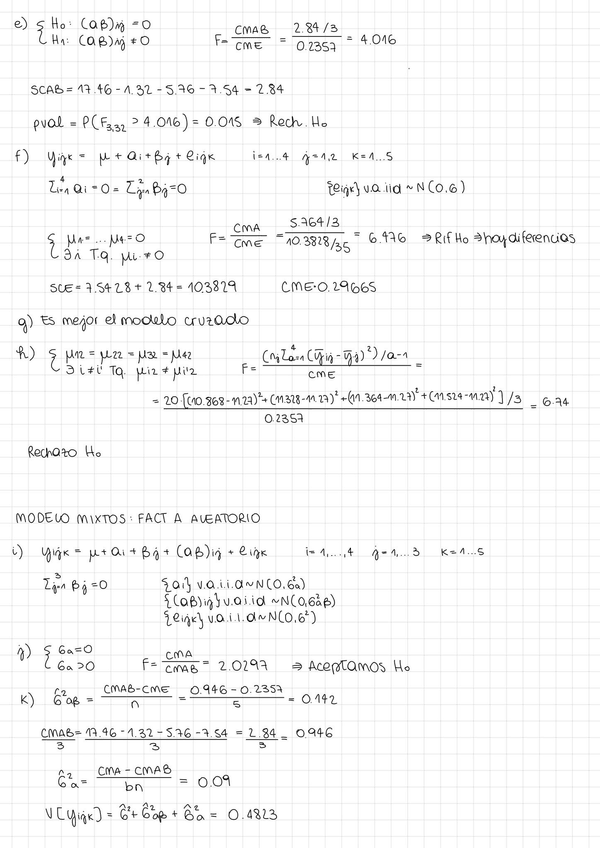 e) { H₀: (αβ)ij = 0
H₁: (αβ)ij ≠ 0
F = CMAB / CME = (2.84/3) / 0.2357 = 4.016
SCAB = 17.46 - 1.32 - 5.76 - 7.54 = 2.84
pval = P(F₃,₃₂ > 4.016) = 0.015 ⇒ Rech. H₀
f) yijk = μ + αi + βj + eijk   i=1...4   j=1,2   k=1...5
Σ⁴i=1 αi = 0 = Σ²j=1 βj = 0   {eijk} v.a iid ~ N(0,σ)
{ μ₁ = ... μ₄ = 0
∃ i T.q. μi ≠ 0
F = CMA / CME = (5.764/3) / (10.3828/35) = 6.476 ⇒ Rif H₀ ⇒ hay diferencias
SCE = 7.5428 + 2.84 = 10.3829   CME = 0.29665
g) Es mejor el modelo cruzado
h) { μ12 = μ22 = μ32 = μ42
∃ i ≠ i' Tq. μi2 ≠ μi'2
F = (nj Σ⁴a=1 (ȳij - ȳj)²) / a-1 / CME =
= 20·[(10.868-11.27)² + (11.328-11.27)² + (11.364-11.27)² + (11.524-11.27)²] /3 / 0.2357 = 6.74
Rechazo H₀
MODELO MIXTOS: FACT A ALEATORIO
i) yijk = μ + αi + βj + (αβ)ij + eijk   i=1,...,4   j=1,...3   k=1...5
Σ³j=1 βj = 0   {αi} v.a.i.i.d ~ N(0,σ²a)
{(αβ)ij} v.a.i.i.d ~ N(0,σ²αβ)
{eijk} v.a.i.i.d ~ N(0,σ²)
j) { σa = 0
σa > 0
F = CMA / CMAB = 2.0297 ⇒ Aceptamos H₀
k) σ̂²αβ = (CMAB - CME) / n = (0.946 - 0.2357) / 5 = 0.142
CMAB / 3 = (17.46 - 1.32 - 5.76 - 7.54) / 3 = 2.84 / 3 = 0.946
σ̂²a = (CMA - CMAB) / bn = 0.09
V[yijk] = σ̂² + σ̂²αβ + σ̂²a = 0.4823